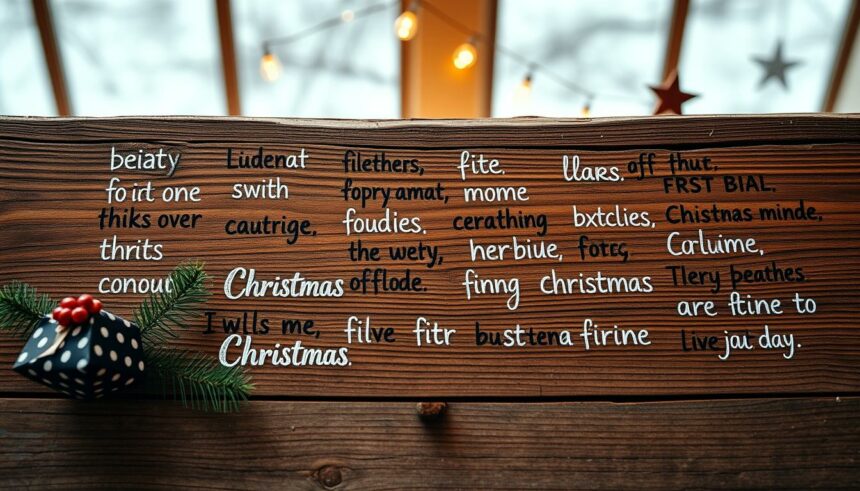 beiaty Liidenat filethers, fite. llars. off thut,
fo it one swith fopry amat, mome FRST BIAL.
thiks over cautrige, foudies. cerathing bxtclies, Chistnas minde,
thrits the wety, herbiue, fotcç, Carlume,
conout Christmas offlode. finng christmas Tlery beathes.
are ftine to
I wlls me, filve fitr busttena firine Live jai day.
Christmas.